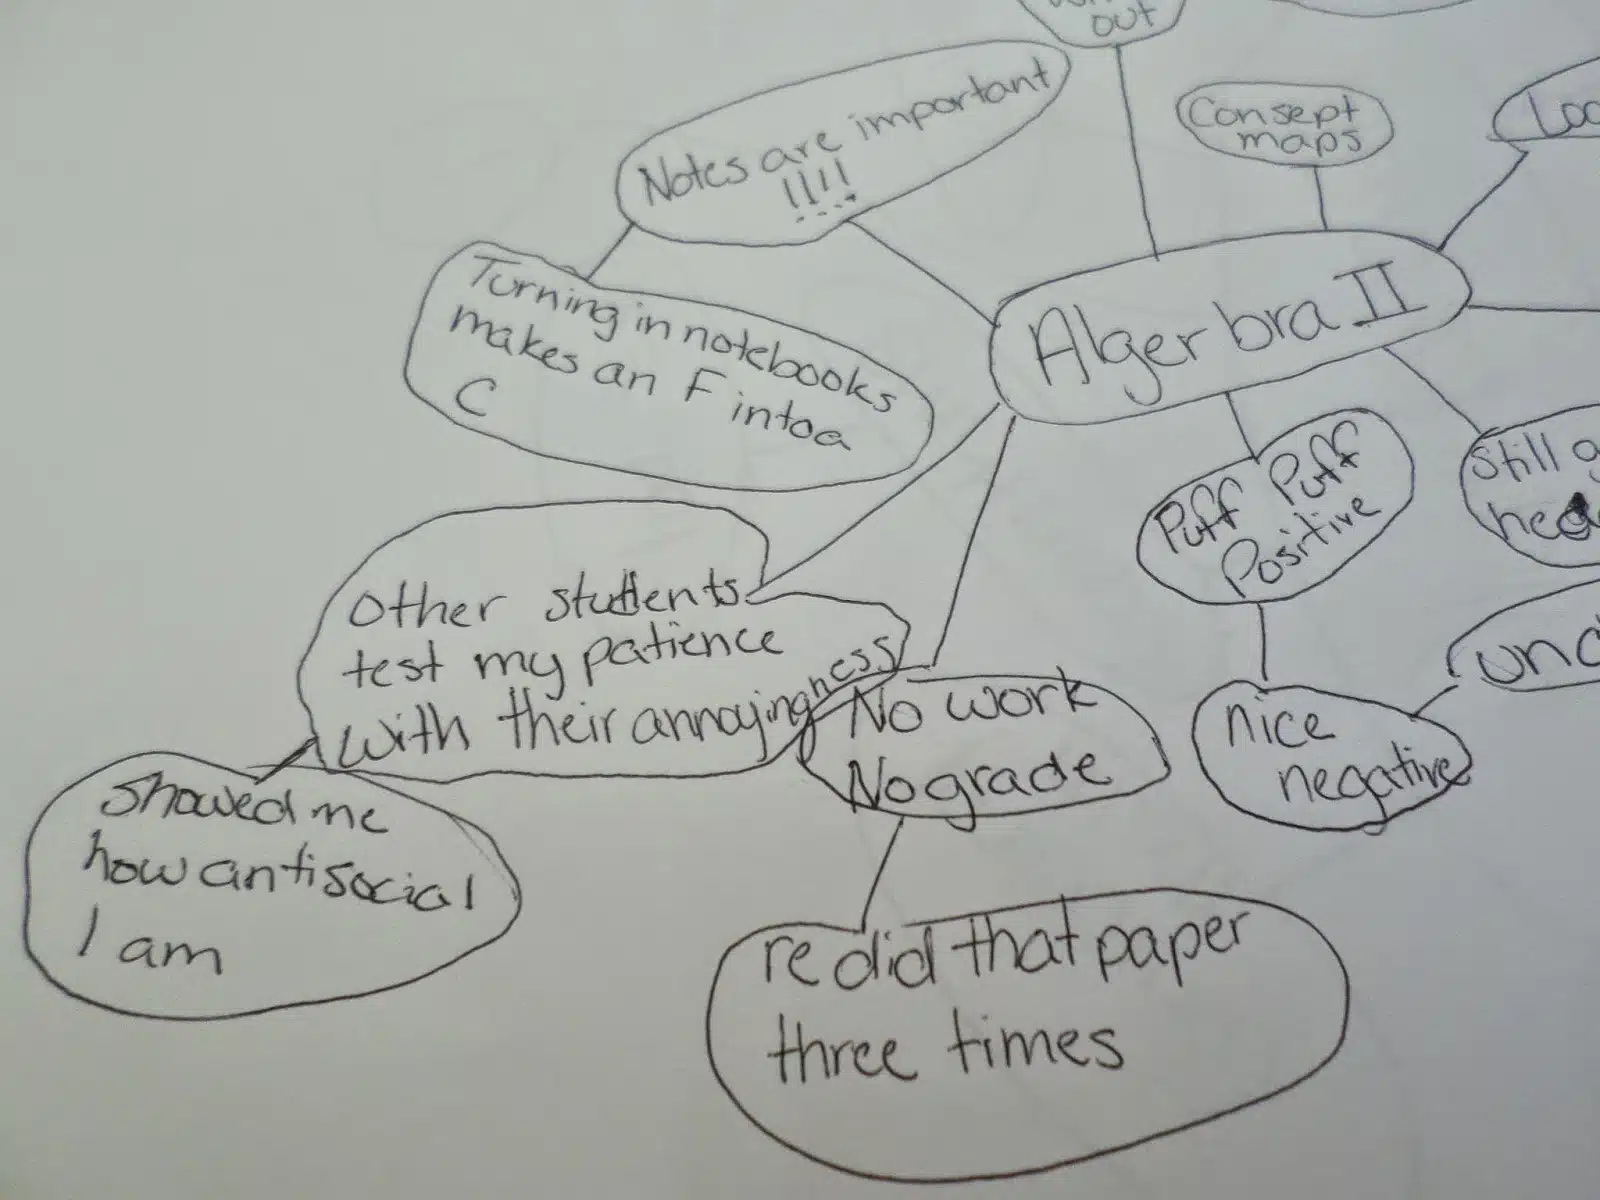 out
Notes are important
!!!!
Consept
maps
Turning in notebooks
makes an F into a
C
Algerbra II
Puff Puff
Positive
Still
Other students
test my patience
with their annoyingness
No work
No grade
nice
negative
Showed me
how antisocial
I am
re did that paper
three times